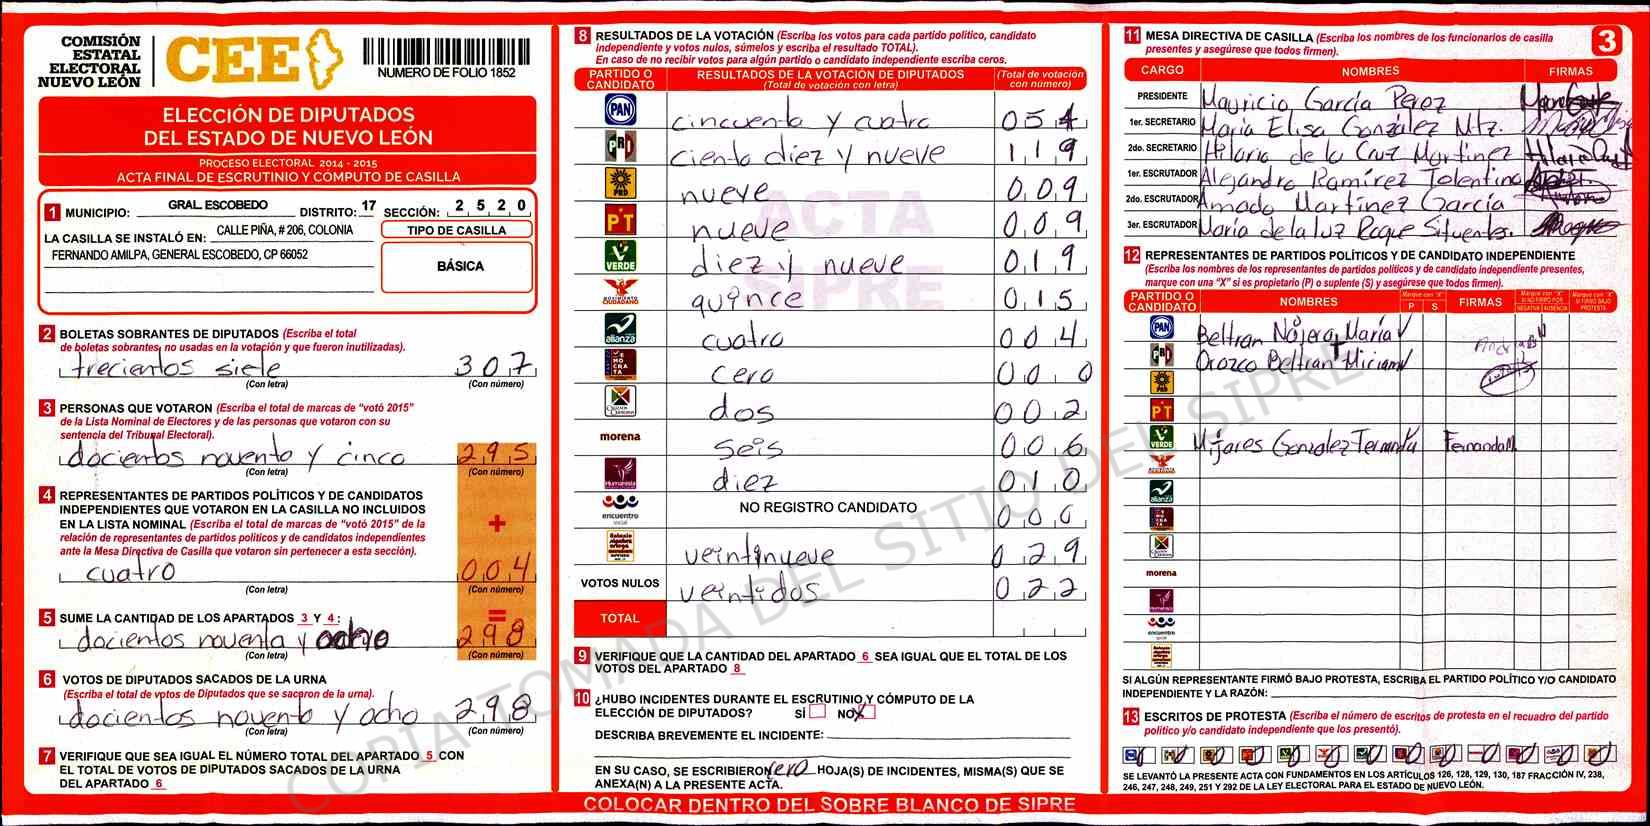 COMISIÓN
ESTATAL
ELECTORAL
NUEVO LEÓN
CEE
NUMERO DE FOLIO 1852
ELECCIÓN DE DIPUTADOS
DEL ESTADO DE NUEVO LEÓN
PROCESO ELECTORAL 2014 - 2015
ACTA FINAL DE ESCRUTINIO Y CÓMPUTO DE CASILLA
1 MUNICIPIO: GRAL. ESCOBEDO DISTRITO: 17 SECCIÓN: 2 5 2 0
LA CASILLA SE INSTALÓ EN: CALLE PIÑA, # 206, COLONIA
FERNANDO AMILPA, GENERAL ESCOBEDO, CP 66052
TIPO DE CASILLA
BÁSICA
2 BOLETAS SOBRANTES DE DIPUTADOS (Escriba el total
de boletas sobrantes no usadas en la votación y que fueron inutilizadas).
trecientos siete 307
(Con letra) (Con número)
3 PERSONAS QUE VOTARON (Escriba el total de marcas de "votó 2015"
de la Lista Nominal de Electores y de las personas que votaron con su
sentencia del Tribunal Electoral).
docientos noventa y cinco 295
(Con letra) (Con número)
4 REPRESENTANTES DE PARTIDOS POLÍTICOS Y DE CANDIDATOS
INDEPENDIENTES QUE VOTARON EN LA CASILLA NO INCLUIDOS
EN LA LISTA NOMINAL (Escriba el total de marcas de "votó 2015" de la
relación de representantes de partidos políticos y de candidatos independientes
ante la Mesa Directiva de Casilla que votaron sin pertenecer a esta sección).
+
cuatro 004
(Con letra) (Con número)
=
5 SUME LA CANTIDAD DE LOS APARTADOS 3 Y 4:
docientos noventa y ocho 298
(Con letra) (Con número)
6 VOTOS DE DIPUTADOS SACADOS DE LA URNA
(Escriba el total de votos de Diputados que se sacaron de la urna).
docientos noventa y ocho 298
(Con letra) (Con número)
7 VERIFIQUE QUE SEA IGUAL EL NÚMERO TOTAL DEL APARTADO 5 CON
EL TOTAL DE VOTOS DE DIPUTADOS SACADOS DE LA URNA
DEL APARTADO 6
8 RESULTADOS DE LA VOTACIÓN (Escriba los votos para cada partido político, candidato
independiente y votos nulos, súmelos y escriba el resultado TOTAL).
En caso de no recibir votos para algún partido o candidato independiente escriba ceros.
PARTIDO O CANDIDATO RESULTADOS DE LA VOTACIÓN DE DIPUTADOS (Total de votación con letra) (Total de votación con número)
PAN cincuenta y cuatro 054
PRI ciento diez y nueve 119
PRD nueve 009
PT nueve 009
VERDE diez y nueve 019
MOVIMIENTO CIUDADANO quince 015
alianza cuatro 004
cero 000
dos 002
morena seis 006
Humanista diez 010
encuentro social NO REGISTRO CANDIDATO 000
veintinueve 029
VOTOS NULOS veintidos 022
TOTAL
ACTA
SIPRE
9 VERIFIQUE QUE LA CANTIDAD DEL APARTADO 6 SEA IGUAL QUE EL TOTAL DE LOS
VOTOS DEL APARTADO 8
10 ¿HUBO INCIDENTES DURANTE EL ESCRUTINIO Y CÓMPUTO DE LA
ELECCIÓN DE DIPUTADOS? SÍ NO X
DESCRIBA BREVEMENTE EL INCIDENTE:
EN SU CASO, SE ESCRIBIERON cero HOJA(S) DE INCIDENTES, MISMA(S) QUE SE
ANEXA(N) A LA PRESENTE ACTA.
COLOCAR DENTRO DEL SOBRE BLANCO DE SIPRE
11 MESA DIRECTIVA DE CASILLA (Escriba los nombres de los funcionarios de casilla
presentes y asegúrese que todos firmen).
3
CARGO NOMBRES FIRMAS
PRESIDENTE Mauricio García Perez
1er. SECRETARIO María Elisa González Mtz.
2do. SECRETARIO Hilario de la Cruz Martinez
1er. ESCRUTADOR Alejandro Ramírez Tolentino
2do. ESCRUTADOR Amado Martínez García
3er. ESCRUTADOR María de la luz Roque Sifuentes.
12 REPRESENTANTES DE PARTIDOS POLÍTICOS Y DE CANDIDATO INDEPENDIENTE
(Escriba los nombres de los representantes de partidos políticos y de candidato independiente presentes,
marque con una "X" si es propietario (P) o suplente (S) y asegúrese que todos firmen).
PARTIDO O CANDIDATO NOMBRES Marque con "X" P S FIRMAS Marque con "X" SI NO FIRMÓ POR NEGATIVA AUSENCIA Marque con "X" SI FIRMÓ BAJO PROTESTA
PAN Beltran Nájera María
PRI Orozco Beltran Miriam
PRD
PT
VERDE Mijares Gonzalez Fernanda Fernanda M
alianza
morena
Humanista
encuentro social
SI ALGÚN REPRESENTANTE FIRMÓ BAJO PROTESTA, ESCRIBA EL PARTIDO POLÍTICO Y/O CANDIDATO
INDEPENDIENTE Y LA RAZÓN:
13 ESCRITOS DE PROTESTA (Escriba el número de escritos de protesta en el recuadro del partido
político y/o candidato independiente que los presentó).
SE LEVANTÓ LA PRESENTE ACTA CON FUNDAMENTOS EN LOS ARTÍCULOS 126, 128, 129, 130, 187 FRACCIÓN IV, 238,
246, 247, 248, 249, 251 Y 292 DE LA LEY ELECTORAL PARA EL ESTADO DE NUEVO LEÓN.
COPIA TOMADA DEL SITIO DEL SIPRE